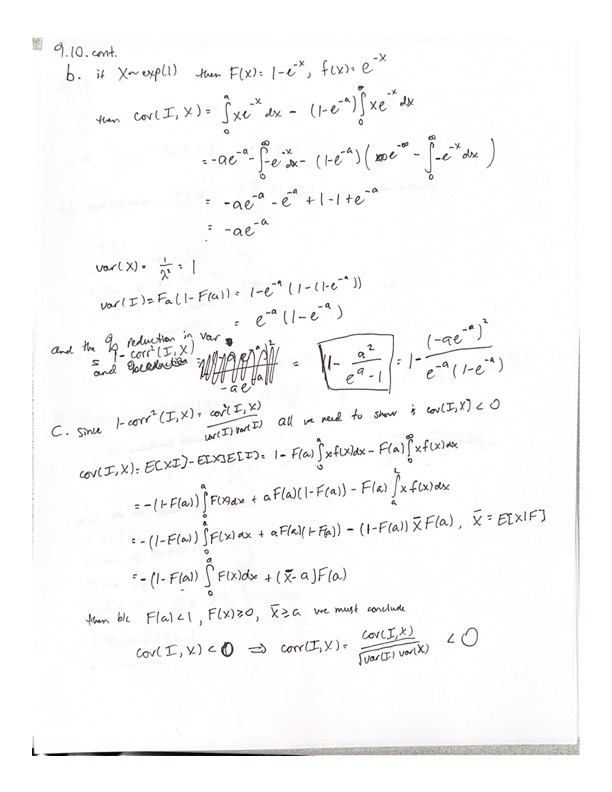 9.10. cont.
b. if X~exp(1) then F(x)= 1-e^{-x}, f(x)= e^{-x}
then cov(I, X) = ∫_0^a xe^{-x} dx - (1-e^{-a}) ∫_0^∞ xe^{-x} dx
= -ae^{-a} - ∫_0^∞ -e^{-x} dx - (1-e^{-a}) ( ∞e^{-∞} - ∫_0^∞ -e^{-x} dx )
= -ae^{-a} - e^{-a} + 1 - 1 + e^{-a}
= -ae^{-a}
var(X) = 1/λ² = 1
var(I) = Fa(1-F(a)) = 1-e^{-a} (1-(1-e^{-a}))
= e^{-a} (1-e^{-a})
and the % reduction in var
= 1 - corr²(I, X)
and = 1 - a²/(e^a - 1) = 1 - (-ae^{-a})²/(e^{-a}(1-e^{-a}))
C. Since 1-corr²(I, X) = cov²(I, X)/(var(I) var(I)) all we need to show is cov(I, X) < 0
cov(I, X) = E[XI] - E[X]E[I] = 1 - F(a) ∫_0^a xf(x)dx - F(a) ∫_0^∞ xf(x)dx
= -(1-F(a)) ∫_0^a F(x)dx + aF(a)(1-F(a)) - F(a) ∫_a xf(x)dx
= -(1-F(a)) ∫_0^a F(x)dx + aF(a)(1-F(a)) - (1-F(a)) x̄F(a), x̄ = E[X|F]
= -(1-F(a)) ∫_0^a F(x)dx + (x̄-a)F(a)
then b/c F(a)<1, F(x)≥0, x̄≥a we must conclude
cov(I, X) < 0 ⇒ corr(I, X) = cov(I, X)/√(var(I) var(X)) < 0